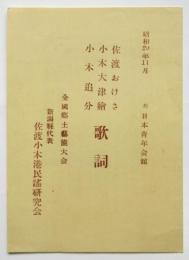 昭和29年11月
於 日本青年会館
佐渡おけさ
小木大津繪
小木追分
歌詞
全國郷土藝能大会
新潟縣代表
佐渡小木港民謡研究会